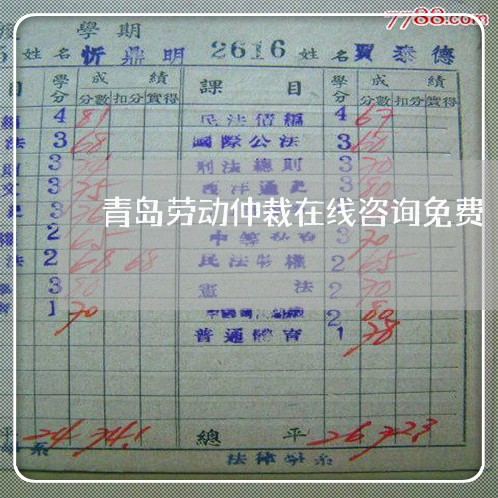 7788.com
學期
姓名 忻鼎明 2616 姓名 賈泰德
目 學分 成績 課目 學分 成績
分數 扣分 實得 分數 扣分 實得
4 81 民法債編 4 67
法 3 68 國際公法 3 60
3 刑法總則 3 70
3 75 西洋通史 3 80
青岛劳动仲裁在线咨询免费
2 65 3 70
法 2 68 68 民法物權 2 65
3 80 憲法 2 70
1 70 2 80
普通體育 1 78
平 24 總平 26
系 法律學系